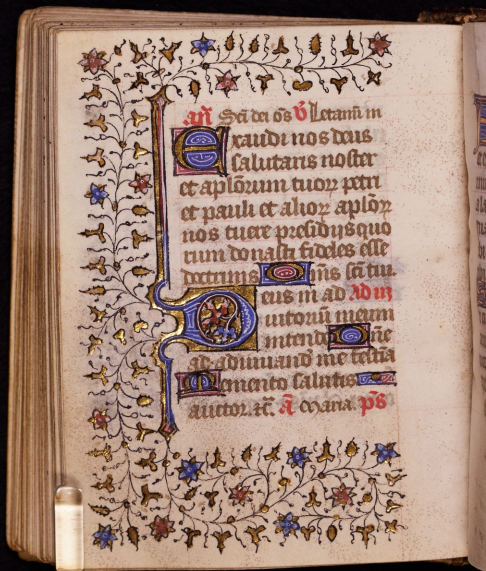 añ Sc̄i dei os̄ v̄ Letamī in
Exaudi nos deus
salutaris noster
et apl̄orum tuoꝝ petri
et pauli et alioꝝ apl̄oꝝ
nos tuere presidijs quo
rum donasti fideles esse
doctrinis Om̄s sc̄i tu
Deus in ad Ad iij
iutoriū meum
intende Dn̄e
ad adiuuand̄ me festia
Memento salutis
auctor. ꝛc̄. ā Maria. p̄s